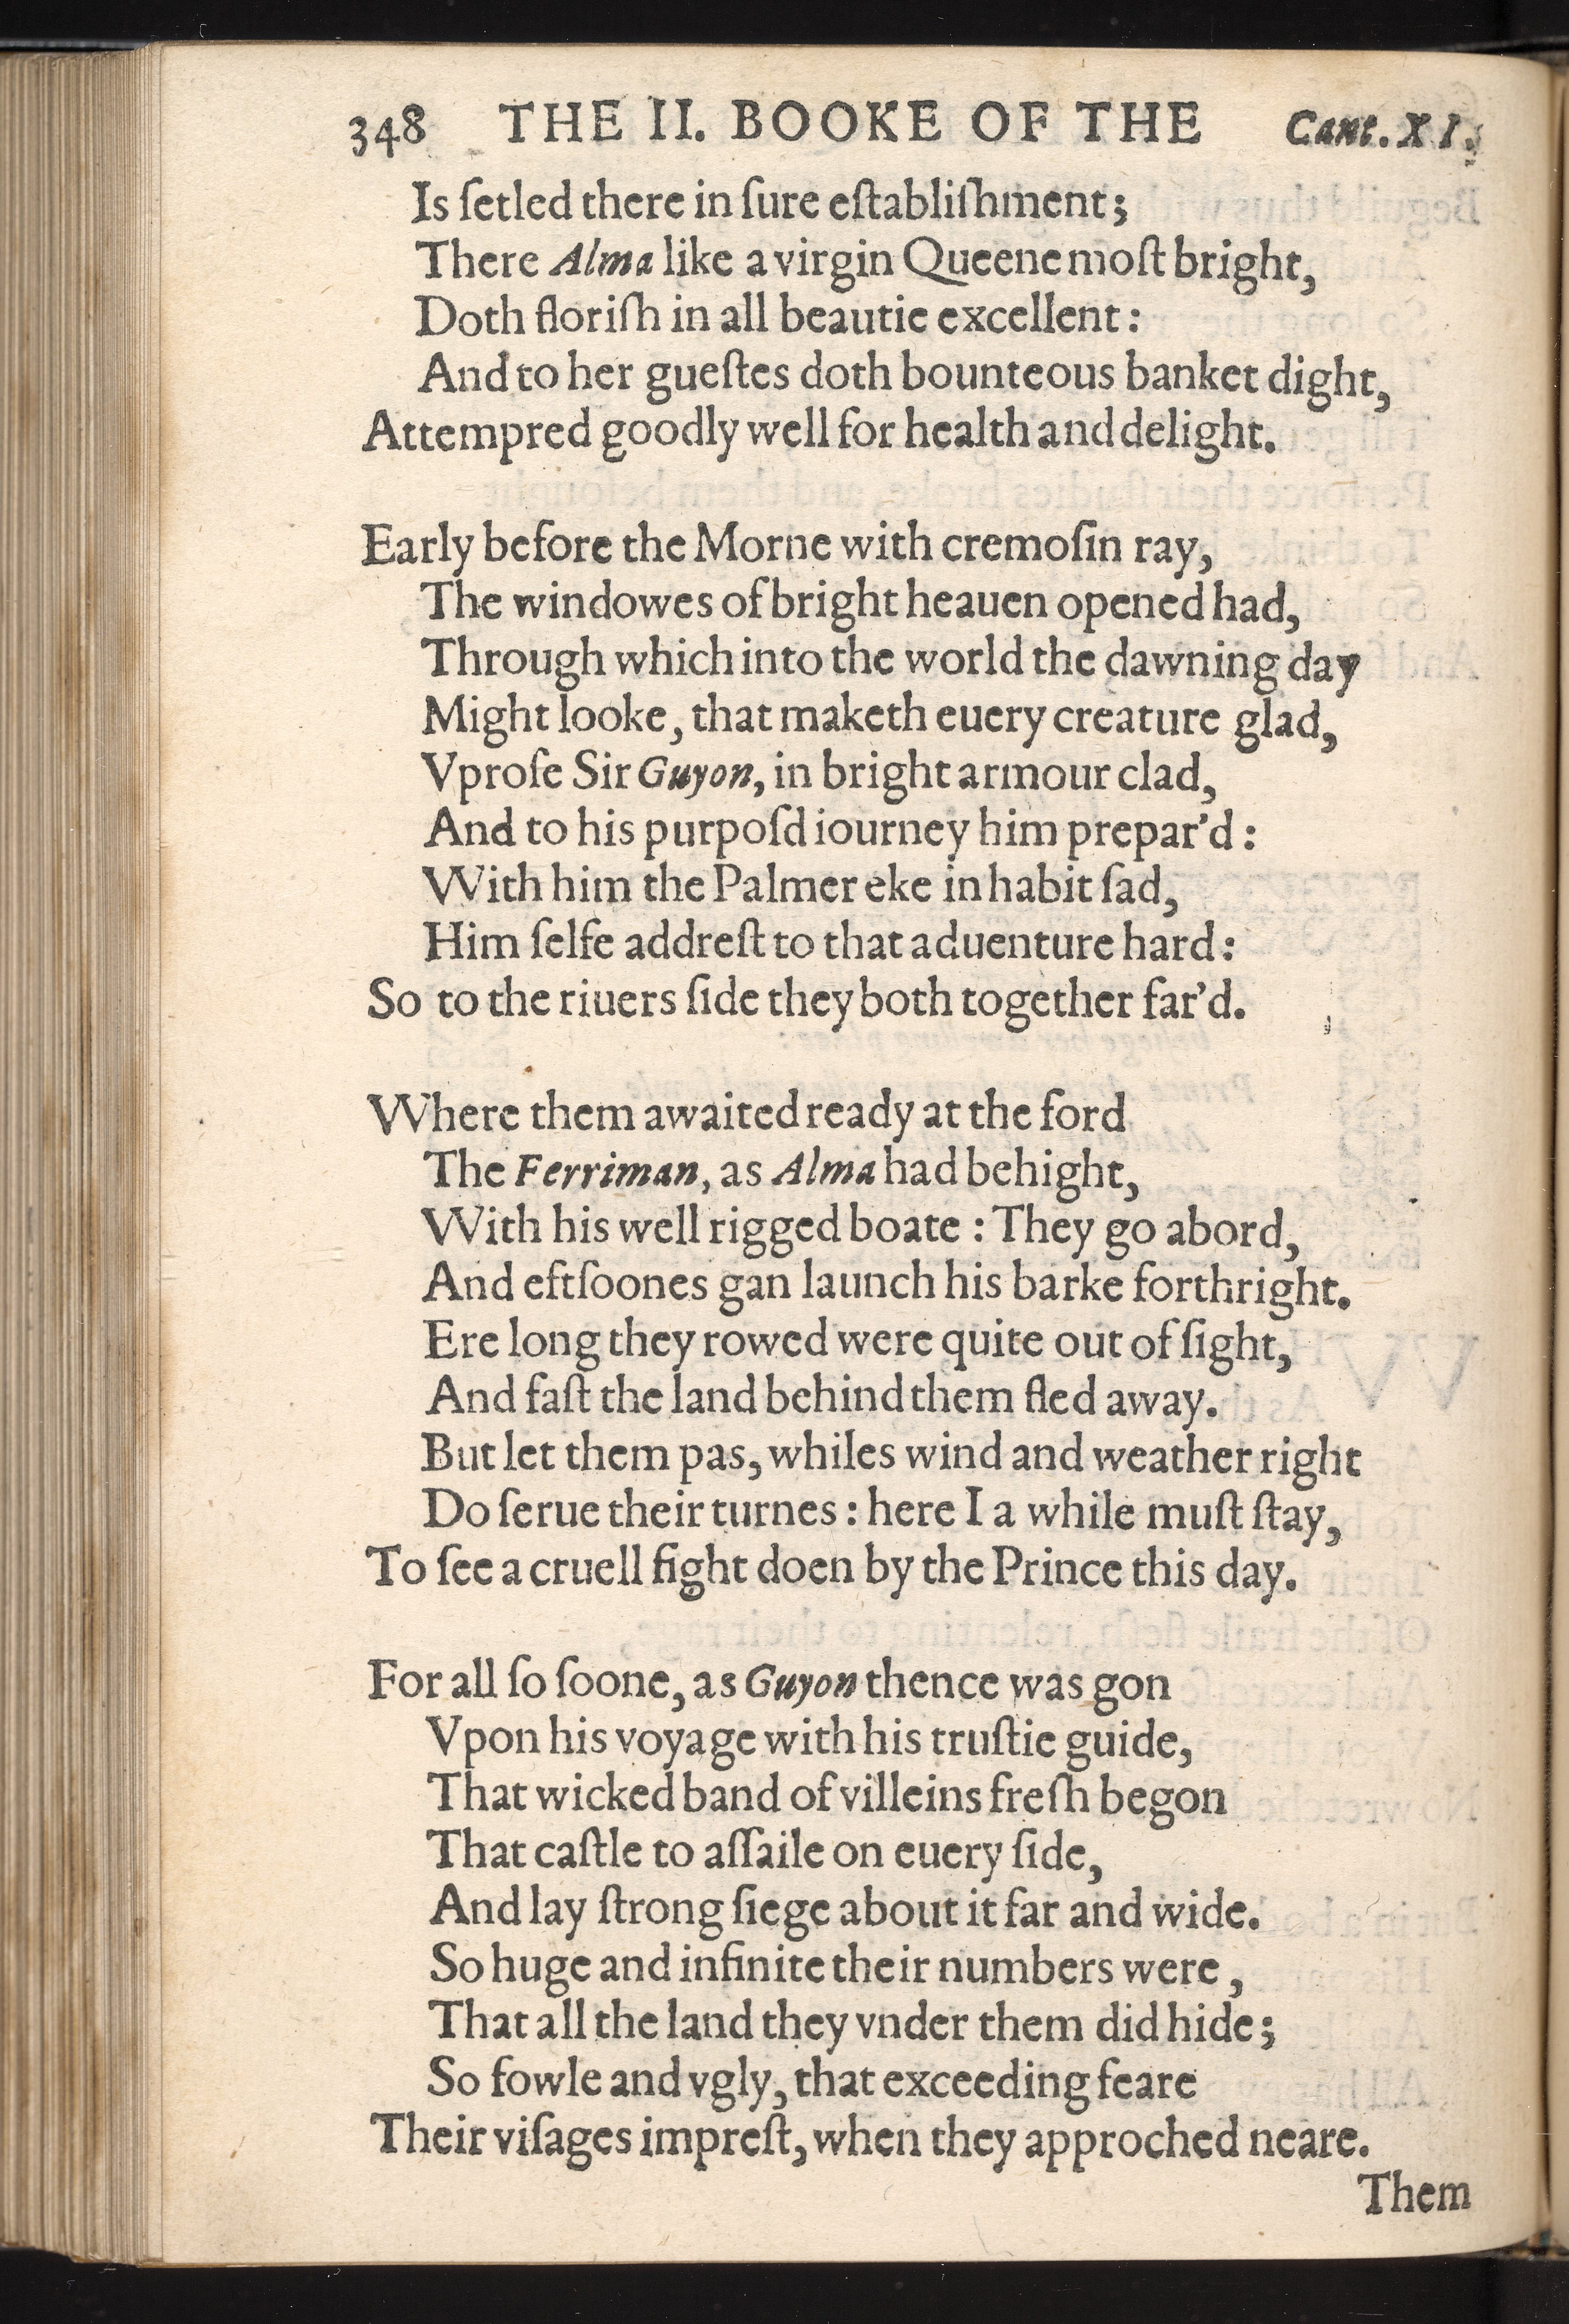 348 THE II. BOOKE OF THE Cant. XI.
Is ſetled there in ſure eſtabliſhment;
There Alma like a virgin Queene moſt bright,
Doth floriſh in all beautie excellent:
And to her gueſtes doth bounteous banket dight,
Attempred goodly well for health and delight.
Early before the Morne with cremoſin ray,
The windowes of bright heauen opened had,
Through which into the world the dawning day
Might looke, that maketh euery creature glad,
Vproſe Sir Guyon, in bright armour clad,
And to his purpoſd iourney him prepar'd:
With him the Palmer eke in habit ſad,
Him ſelfe addreſt to that aduenture hard:
So to the riuers ſide they both together far'd.
Where them awaited ready at the ford
The Ferriman, as Alma had behight,
With his well rigged boate: They go abord,
And eftſoones gan launch his barke forthright.
Ere long they rowed were quite out of ſight,
And faſt the land behind them fled away.
But let them pas, whiles wind and weather right
Do ſerue their turnes: here I a while muſt ſtay,
To ſee a cruell fight doen by the Prince this day.
For all ſo ſoone, as Guyon thence was gon
Vpon his voyage with his truſtie guide,
That wicked band of villeins freſh begon
That caſtle to aſſaile on euery ſide,
And lay ſtrong ſiege about it far and wide.
So huge and infinite their numbers were,
That all the land they vnder them did hide;
So fowle and vgly, that exceeding feare
Their viſages impreſt, when they approched neare.
Them